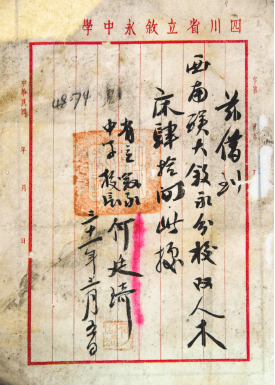 四川省立敘永中學
茲借到
西南聯大敘永分校双人木
床肆拾间此據
省立敘永
中學校長 何廷琦
三十一年二月五日
4874
中華民國 年 月 日